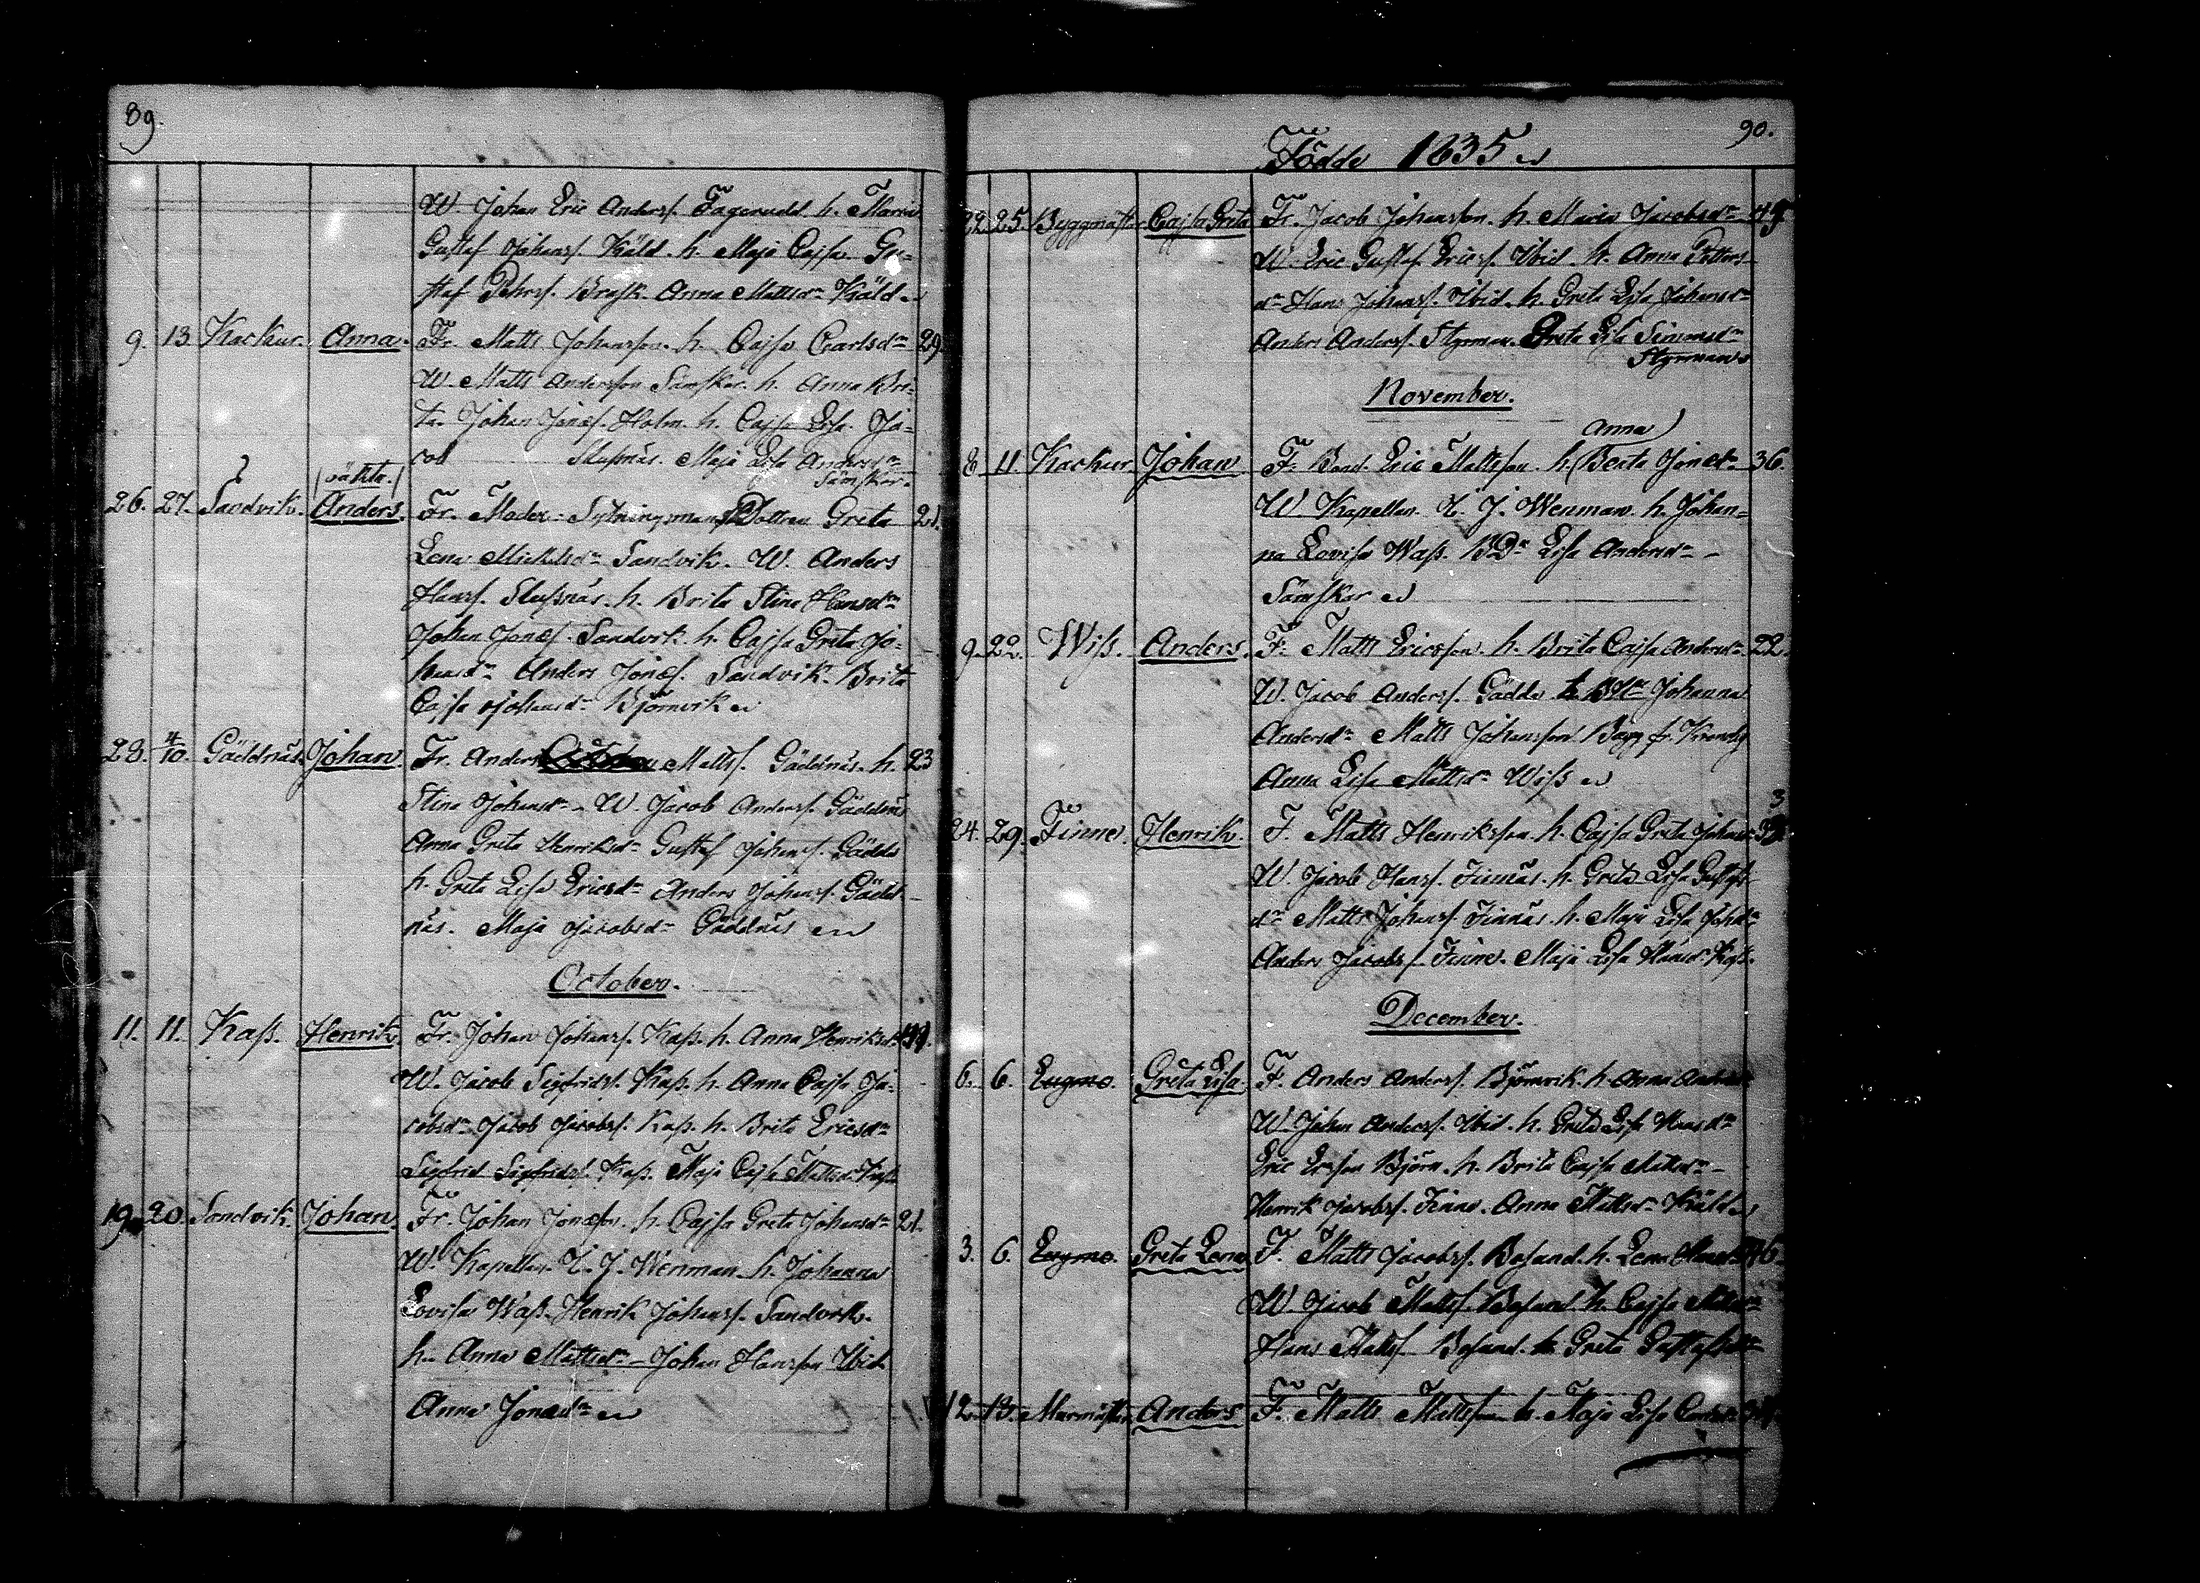 89.
W. Johan Eric Anders. Fagerudd h. Maria
Gustaf Johanss. Käld. h. Maja Cajsa. Gu-
staf Pehrss. Brask. Anna Mattsdr Käld
9. 13. Kackur. Anna. Fr. Matts Johansson. h. Cajsa Carlsdr 29.
W. Matts Andersson Sämskar. h. Anna Bri-
ta. Johan Jonæs. Holm. h. Cajsa Lisa. Ja-
cob Slussnäs. Maja Lisa Andersdr
Sämskar.
(oäkta.)
26. 27. Sandvik. Anders. Fr. Moder Sytningsmans Dottren Greta 21.
Lena Mickelsdr Sandvik. W. Anders
Hanss. Slussnäs. h. Brita Stina Hansdr
Johan Jonæs. Sandvik. h. Cajsa Greta Jo-
hansdr Anders Jonæs. Sandvik. Brita
Cajsa Johansdr Björnvik
28. 4/10. Gäddnäs. Johan. Fr. Anders Matts. Gäddnäs. h. 23
Stina Johansdr W. Jacob Anderss. Gäddnäs
Anna Greta Henriksdr Gustaf Johanss. Gädda
h. Greta Lisa Ericsdr Anders Johanss. Gädd-
näs. Maja Jacobsdr Gäddnäs
October.
11. 11. Kass. Henrik Fr. Johan Johanss. Kass. h. Anna Henriksdr
W. Jacob Sigfridss. Kass. h. Anna Cajsa Ja-
cobsdr Jacob Jacobss. Kass. h. Brita Ericsdr
Sigfrid Sigfridss. Kass. Maja Cajsa Mattsdr Kass
19. 20. Sandvik. Johan. Fr. Johan Jonæson. h. Cajsa Greta Johansdr 21.
W. Kapellan J. Wenman. h. Johanna
Lovisa Wass. Henrik Johanss. Sandvik.
h. Anna Mattsdr Johan Hansson Ibid
Anna Jonædr
90.
Födde 1835
22. 25. Byggmäster Cajsa Greta Fr. Jacob Johansson. h. Maria Jacobsdr
W. Eric Gustaf Erics. Ibid. h. Anna Petters-
dr Hans Johanss. Ibid. h. Greta Lisa Johansdr
Anders Anderss. Styrman. Greta Lisa Simonsdr
Styrmans
November.
Anna
8. 11. Kackur. Johan F. Bond. Eric Mattsson. h. (Beata Jonædr 36.
W. Kapellan. J. Wenman. h. Johan-
na Lovisa Wass. BDr Lisa Andersdr
Sämskar
9. 22. Wiss. Anders. F. Matts Ericsson. h. Brita Cajsa Andersdr 22.
W. Jacob Anderss. Gädda Johanna
Andersdr Matts Johansson Bagg fr. Kronoby
Anna Lisa Mattsdr Wiss
24. 29. Finne. Henrik. F. Matts Henriksson. h. Cajsa Greta Johansdr
W. Jacob Hanss. Finnäs. h. Greta Lisa Gustafs-
dr Matts Johanss. Finnäs. h. Maja Lisa Johdr
Anders Jacobss. Finne. Maja Lisa Hansdr
December.
6. 6. Eugmo. Greta Lisa F. Anders Anderss. Björnvik. h. Anna
W. Johan Anderss. Ibid. h. Greta Lisa Hansdr
Eric Ersson Björn. h. Brita Cajsa Mattsdr
Henrik Jacobss. Finne. Anna Mattsdr Käld
3. 6. Eugmo. Greta Lena F. Matts Jacobss. Bosand. h. Lena
W. Jacob Mattss. Bosand. h. Cajsa
Hans Mattss. Bosand. h. Greta Gustafsdr
12. 13. Murmäster Anders F. Matts Mattsson h. Maja Lisa